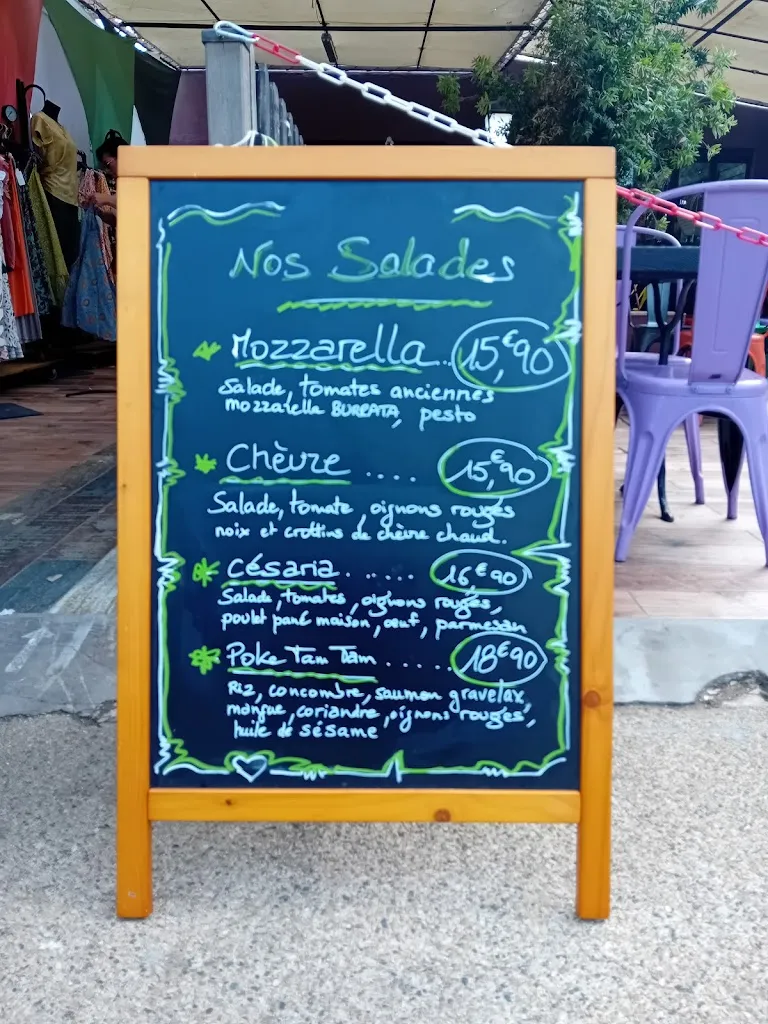 Nos Salades
Mozzarella.. 15,€90
Salade, tomates anciennes
mozzarella BURRATA, pesto
Chèvre .... 15,€90
Salade, tomate, oignons rouges
noix et crottins de chèvre chaud.
Césaria. ..... 16€90
Salade, tomates, oignons rouges,
poulet pané maison, œuf, parmesan
Poke Tam Tam ..... 18€90
Riz, concombre, saumon gravelax,
mangue, coriandre, oignons rouges,
huile de sésame